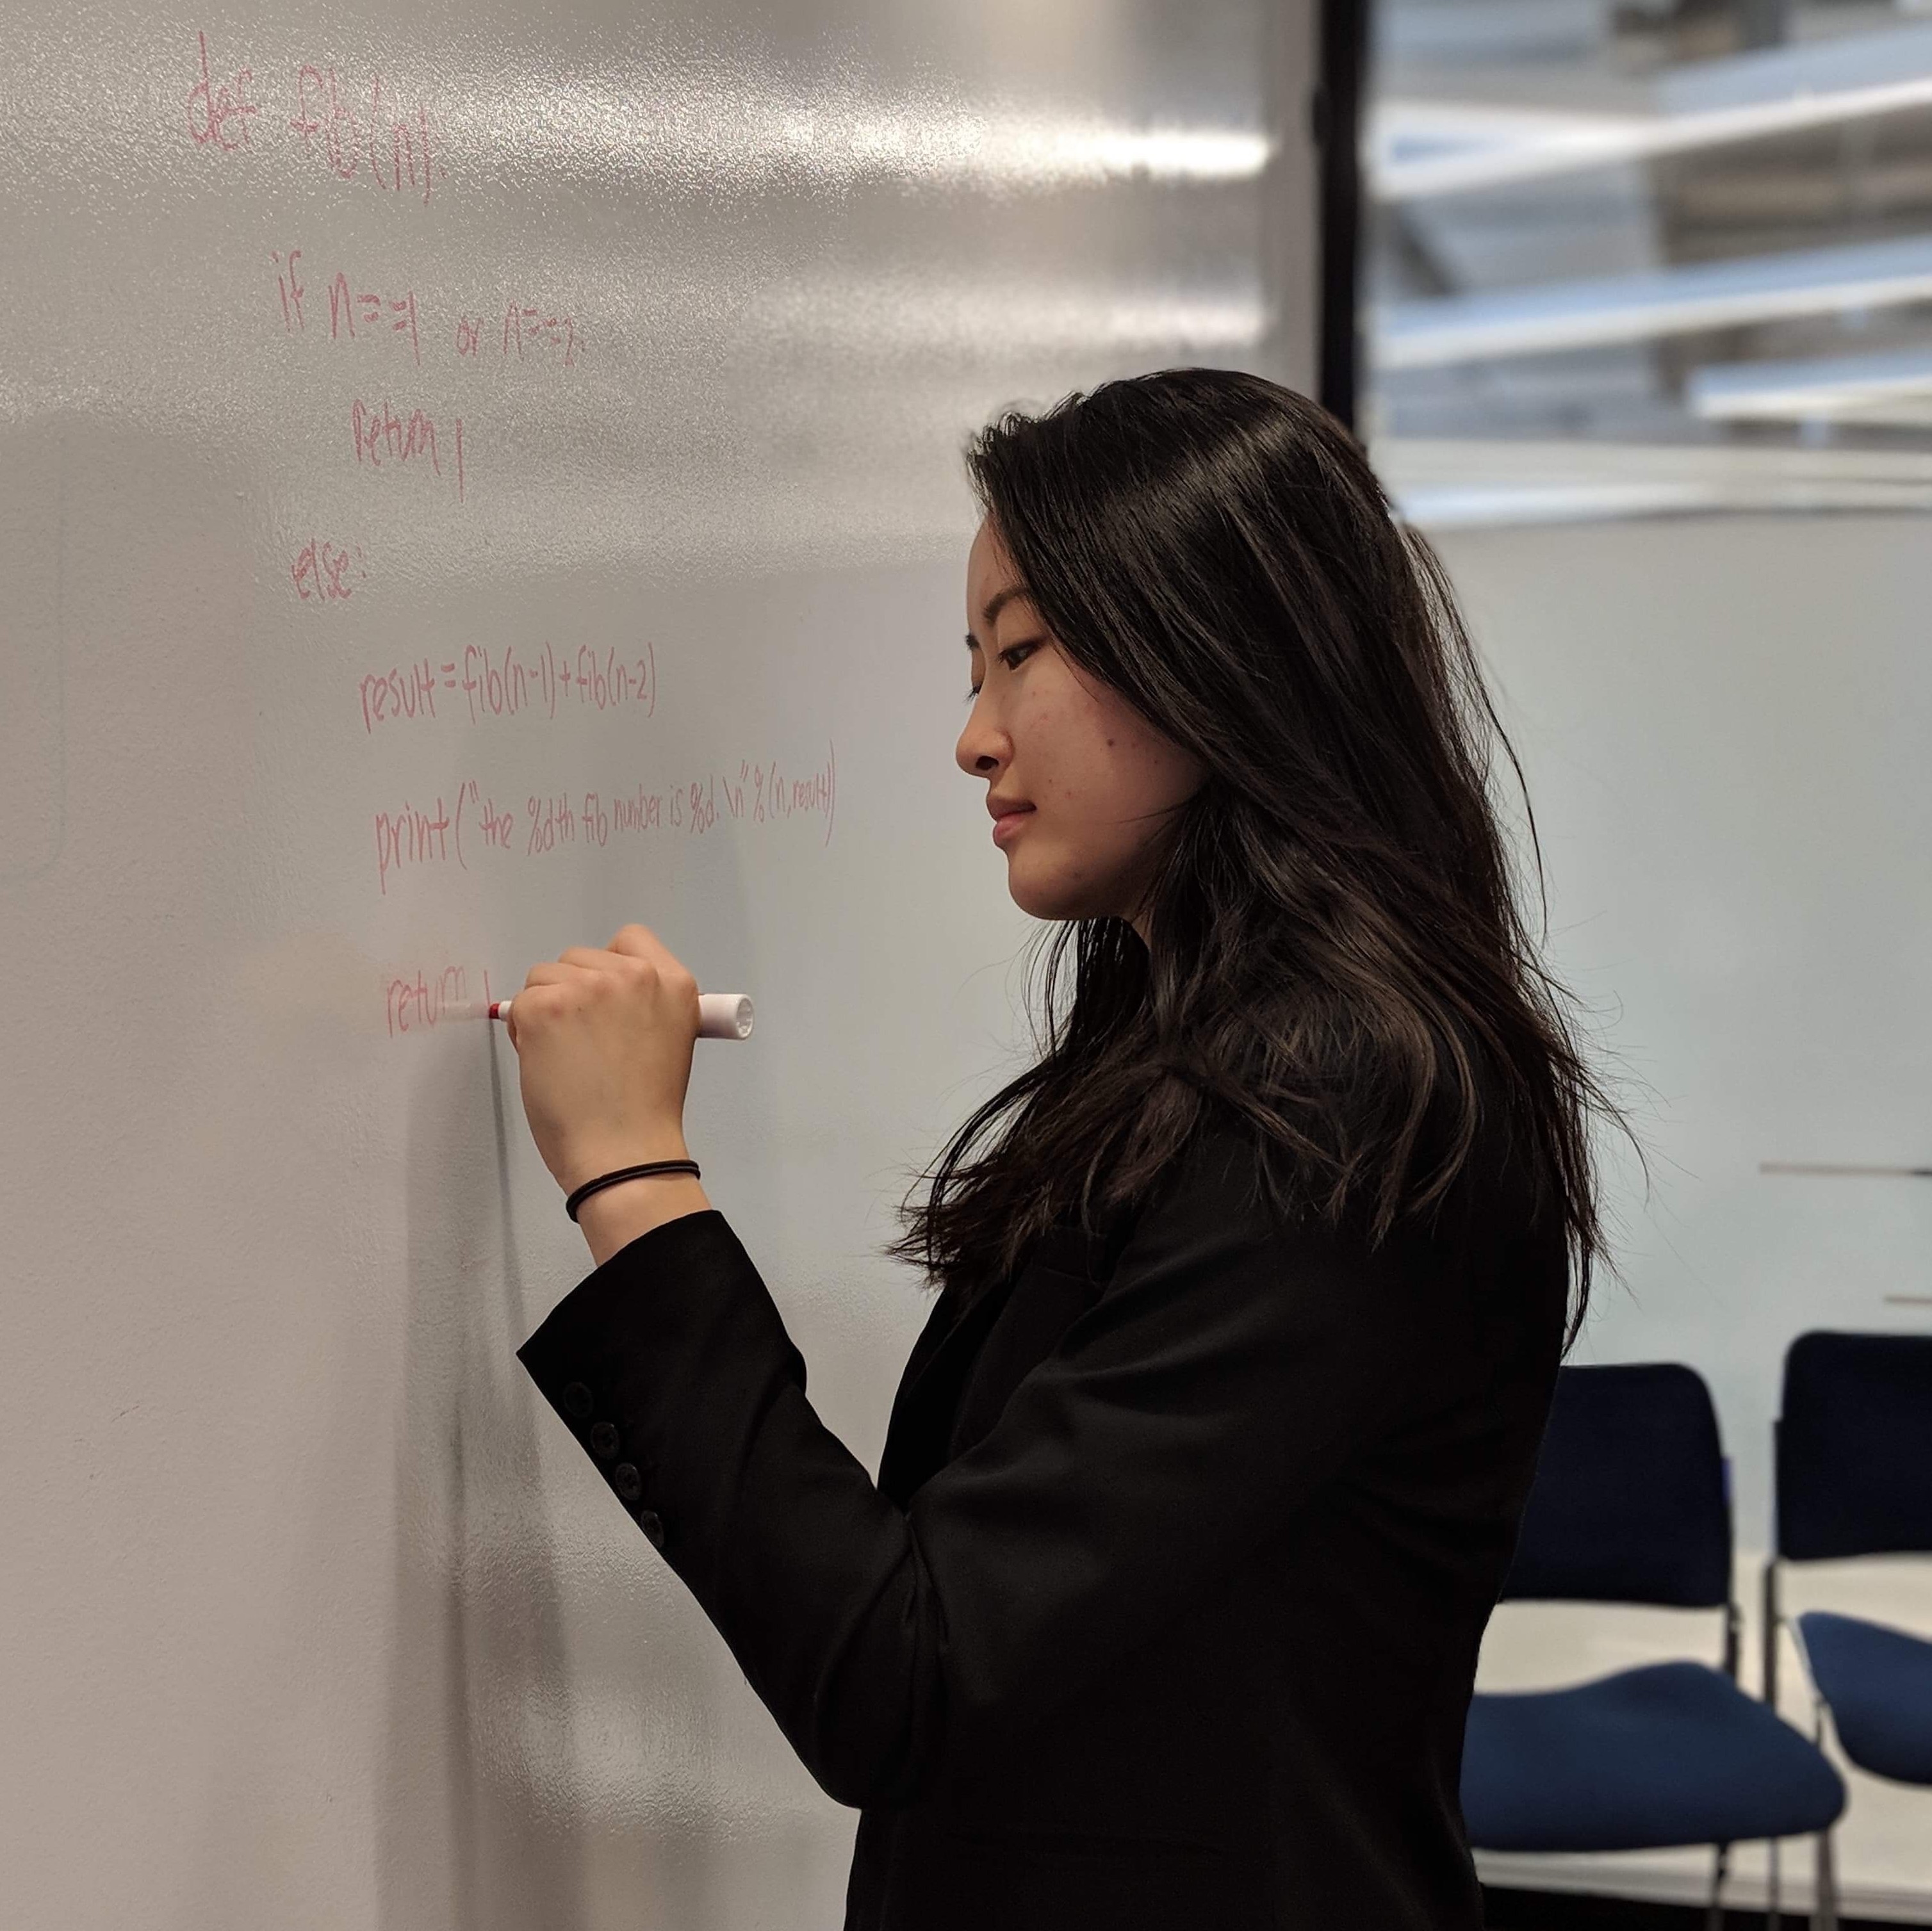 def fib(n):
if n==1 or n==2:
return 1
else:
result=fib(n-1)+fib(n-2)
print("the %dth fib number is %d.\n"%(n,result))
return